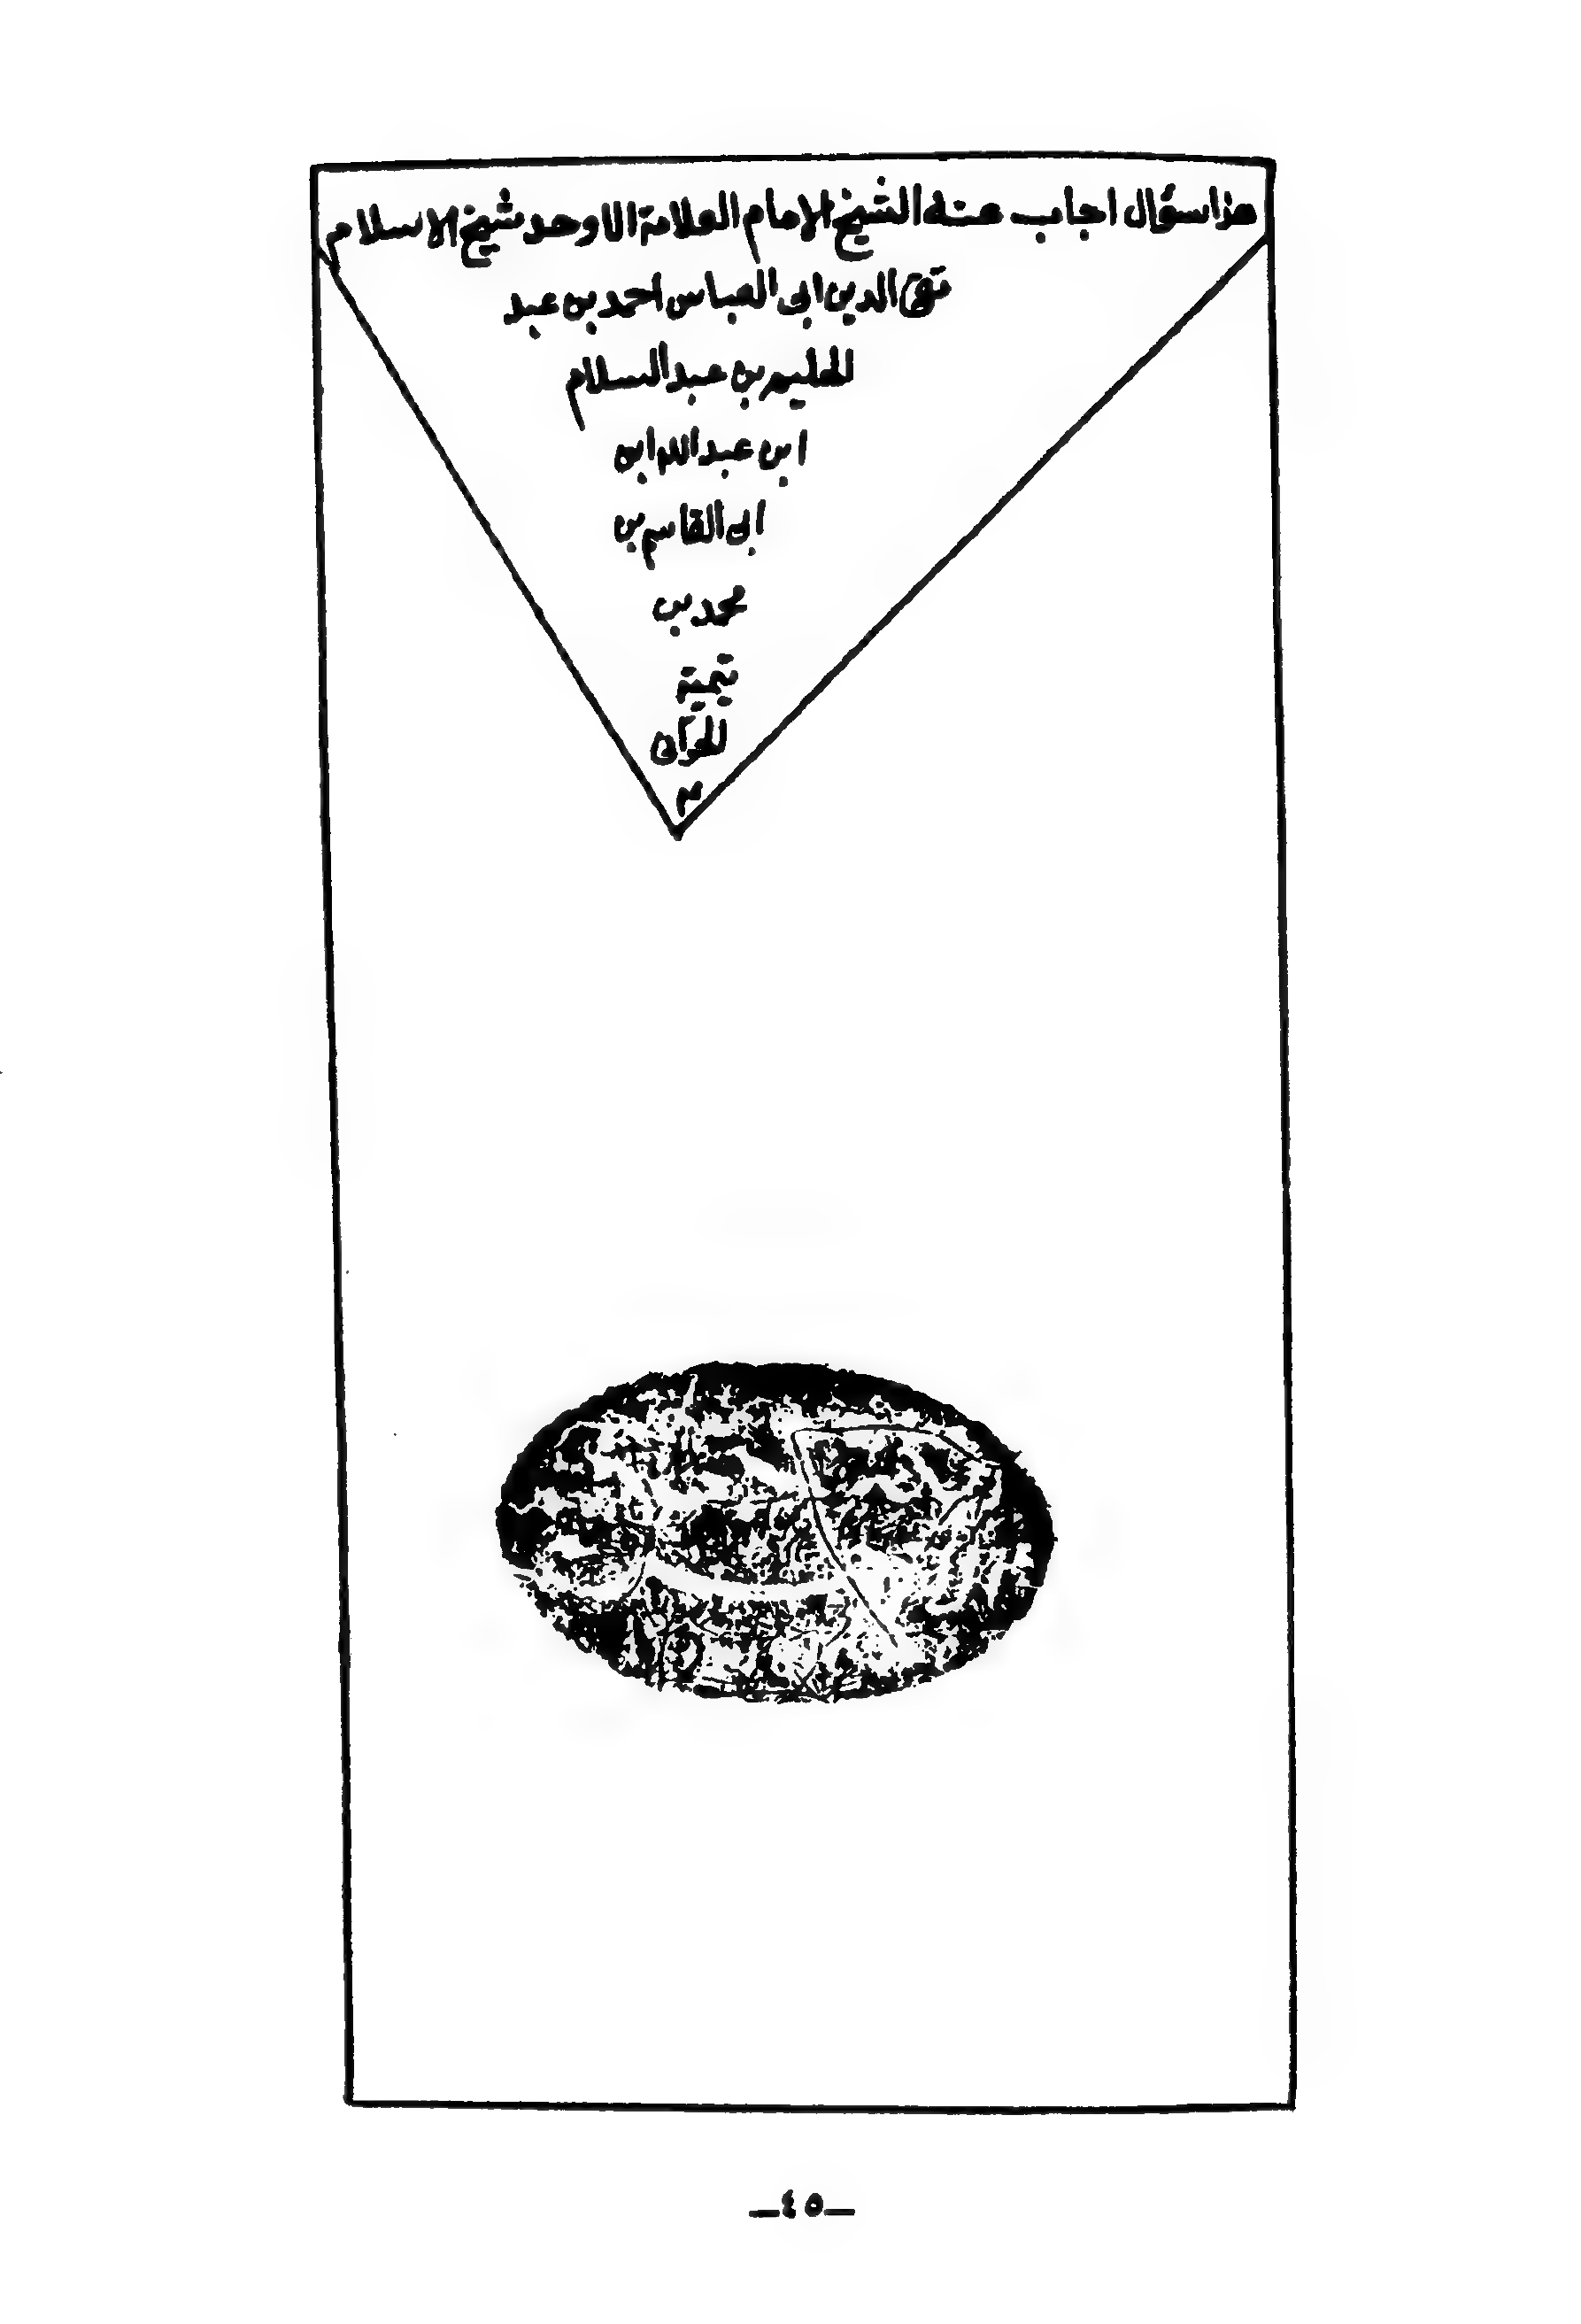 هذا سؤال اجاب عنه الشيخ الامام العلامة الاوحد شيخ الاسلام
تقي الدين ابي العباس احمد بن عبد
الحليم بن عبد السلام
ابن عبد الله ابن
ابي القاسم بن
محمد بن
تيمية
الحراني
م
ـ٤٥ـ